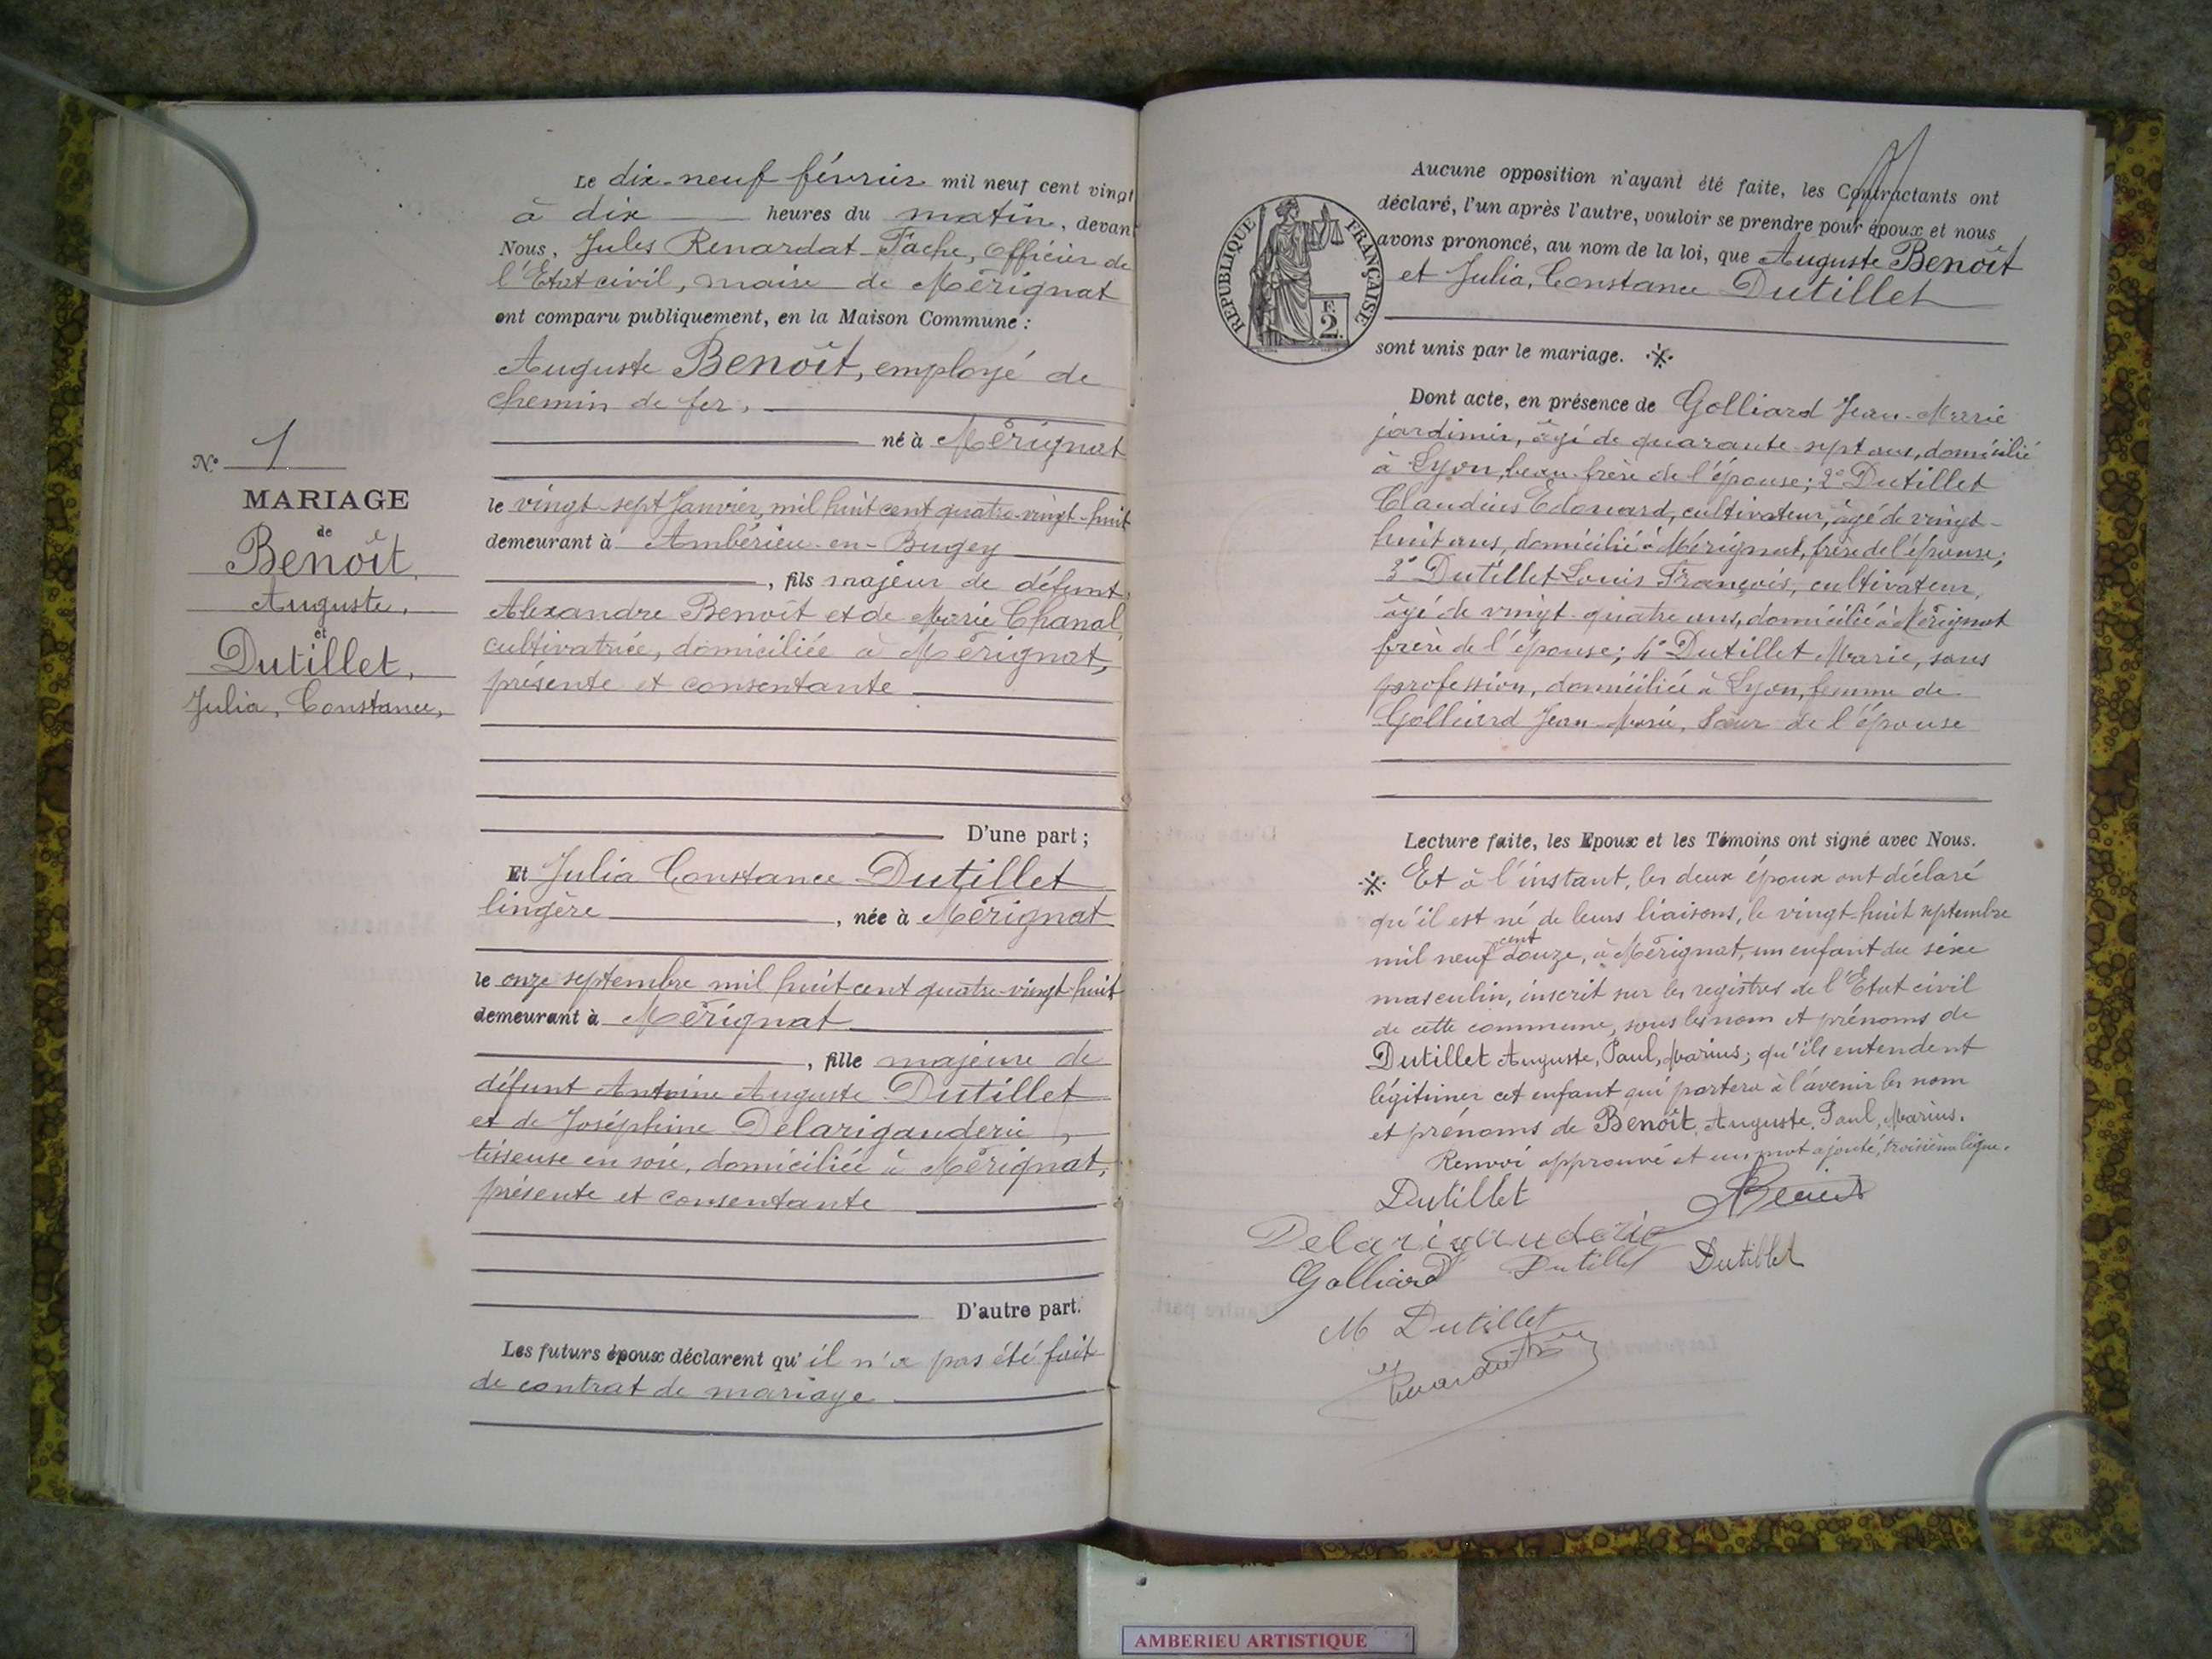 N° 1
MARIAGE
de
Benoît,
Auguste,
et
Dutillet,
Julia, Constance,
Le dix-neuf février mil neuf cent vingt
à dix heures du matin, devant
Nous, Jules Renardat-Fache, Officier de
l'Etat civil, maire de Mérignat
ont comparu publiquement, en la Maison Commune :
Auguste Benoît, employé de
chemin de fer,
né à Mérignat
le vingt-sept Janvier, mil huit cent quatre-vingt-huit
demeurant à Ambérieu-en-Bugey
, fils majeur de défunt
Alexandre Benoit et de Marie Chanal,
cultivatrice, domiciliée à Mérignat,
présente et consentante
D'une part ;
Et Julia Constance Dutillet
lingère , née à Mérignat
le onze septembre mil huit cent quatre-vingt-huit
demeurant à Mérignat
, fille majeure de
défunt Antoine Auguste Dutillet
et de Joséphine Delarigauderie,
tisseuse en soie, domiciliée à Mérignat,
présente et consentante
D'autre part.
Les futurs époux déclarent qu'il n'a pas été fait
de contrat de mariage
1
REPUBLIQUE FRANÇAISE
F.
2.
Aucune opposition n'ayant été faite, les Contractants ont
déclaré, l'un après l'autre, vouloir se prendre pour époux et nous
avons prononcé, au nom de la loi, que Auguste Benoît
et Julia, Constance Dutillet
sont unis par le mariage. ※
Dont acte, en présence de Golliard Jean-Marie
jardinier, âgé de quarante-sept ans, domicilié
à Lyon, beau-frère de l'épouse; 2° Dutillet
Claudius Edouard, cultivateur, âgé de vingt-
huit ans, domicilié à Mérignat, frère de l'épouse;
3° Dutillet Louis François, cultivateur,
âgé de vingt-quatre ans, domicilié à Mérignat
frère de l'épouse; 4° Dutillet Marie, sans
profession, domiciliée à Lyon, femme de
Golliard Jean-Marie, Sœur de l'épouse
Lecture faite, les Epoux et les Témoins ont signé avec Nous.
※ Et à l'instant, les deux époux ont déclaré
qu'il est né de leurs liaisons, le vingt-huit septembre
mil neuf cent douze, à Mérignat, un enfant du sexe
masculin, inscrit sur les registres de l'Etat civil
de cette commune, sous les nom et prénoms de
Dutillet Auguste, Paul, Marius; qu'ils entendent
légitimer cet enfant qui portera à l'avenir les nom
et prénoms de Benoît, Auguste, Paul, Marius.
Renvoi approuvé et un mot ajouté, troisième ligne.
Dutillet
Benoit
Delarigauderie
Golliard Dutillet Dutillet
M Dutillet
AMBERIEU ARTISTIQUE